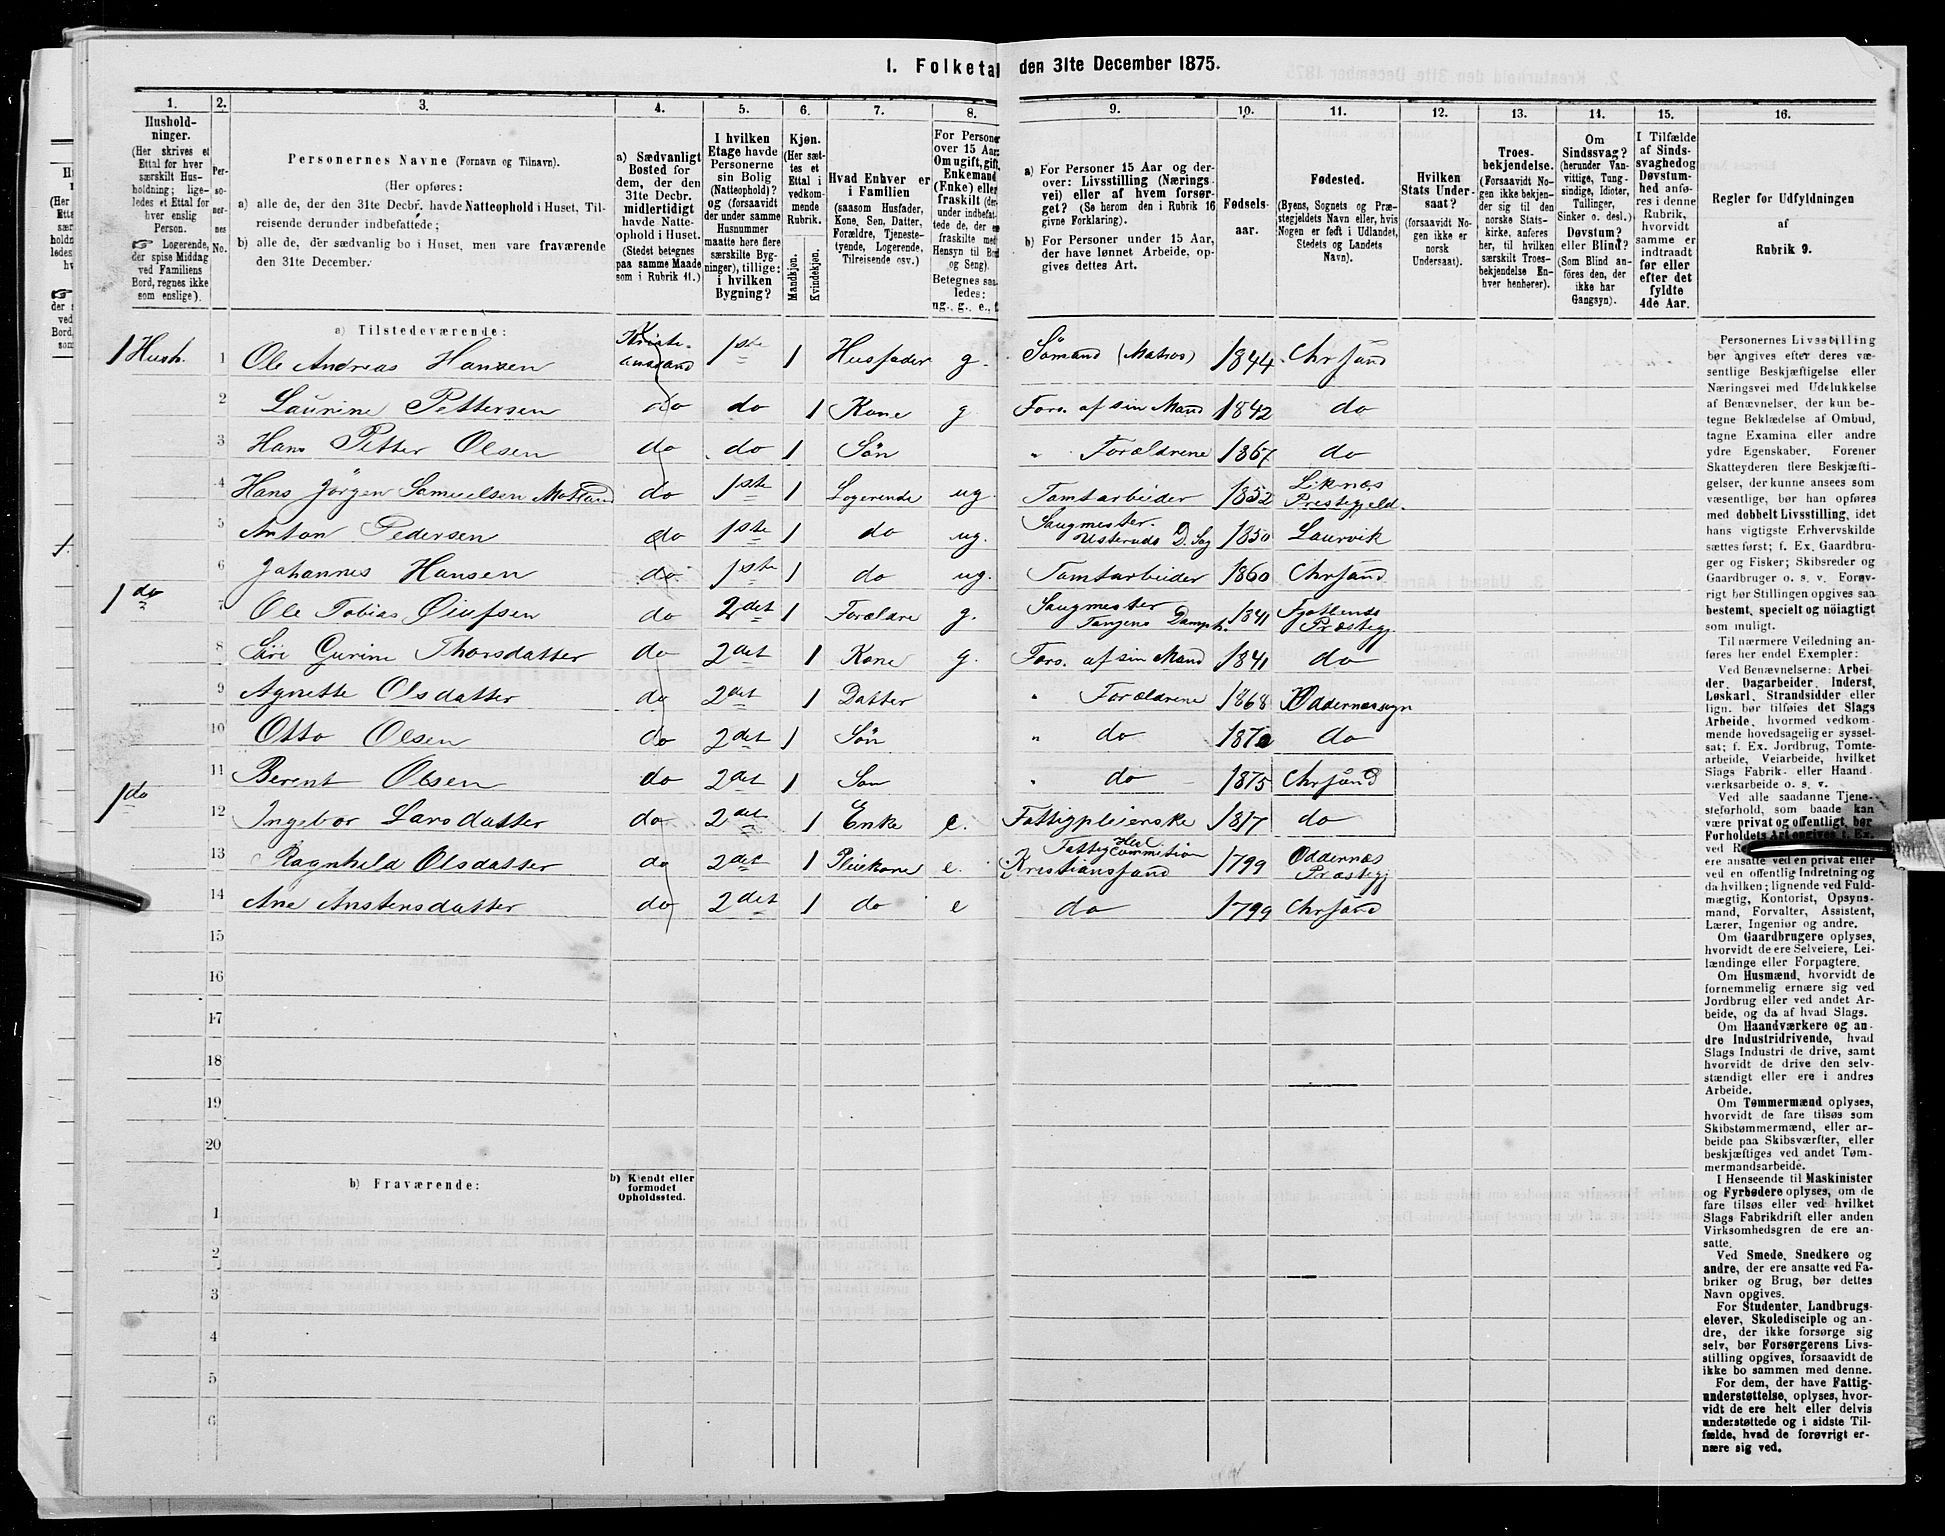 1. Folketal den 31te December 1875.
1. 2. 3. 4. 5. 6. 7. 8. 9. 10. 11. 12. 13. 14. 15. 16.
Hushold-
ninger.
(Her skrives et
Ettal for hver
særskilt Hus-
holdning; lige-
ledes et Ettal for
hver enslig
Person.
Logerende,
der spise Middag
ved Familiens
Bord, regnes ikke
som enslige).
Per-
so-
ner-
nes
No.
Personernes Navne (Fornavn og Tilnavn).
(Her opføres:
a) alle de, der den 31te Decbr. havde Natteophold i Huset, Til-
reisende derunder indbefattede;
b) alle de, der sædvanlig bo i Huset, men vare fraværende
den 31te December.
a) Sædvanligt
Bosted for
dem, der den
31te Decbr.
midlertidigt
havde Natte-
ophold i Huset.
(Stedet betegnes
paa samme Maade
som i Rubrik 11.)
I hvilken
Etage havde
Personerne
sin Bolig
(Natteophold)?
og (forsaavidt
der under samme
Husnummer
maatte høre flere
særskilte Byg-
ninger), tillige:
i hvilken
Bygning?
Kjøn.
(Her sæt-
tes et
Ettal i
vedkom-
mende
Rubrik.
Mandkjøn.
Kvindekjøn.
Hvad Enhver er
i Familien
(saasom Husfader,
Kone, Søn, Datter,
Forældre, Tjeneste-
tyende, Logerende,
Tilreisende osv.)
For Personer
over 15 Aar:
Om ugift, gift,
Enkemand
(Enke) eller
fraskilt (der-
under indbefat-
tede de, der ere
fraskilte med
Hensyn til Bord
og Seng).
Betegnes saa-
ledes:
ug., g., e., f.
a) For Personer 15 Aar og der-
over: Livsstilling (Nærings-
vei) eller af hvem forsør-
get? (Se herom den i Rubrik 16
givne Forklaring).
b) For Personer under 15 Aar,
der have lønnet Arbeide, op-
gives dettes Art.
Fødsels-
aar.
Fødested.
(Byens, Sognets og Præ-
stegjeldets Navn eller, hvis
Nogen er født i Udlandet,
Stedets og Landets
Navn).
Hvilken
Stats Under-
saat?
(forsaavidt No-
gen ikke er
norsk
Undersaat).
Troes-
bekjendelse.
(Forsaavidt No-
gen ikke bekjen-
der sig til den
norske Stats-
kirke, anføres
her, til hvilken
særskilt Troes-
bekjendelse En-
hver henhører).
Om
Sindssvag?
(herunder Van-
vittige, Tung-
sindige, Idioter,
Tullinger,
Sinker o. desl.)
Døvstum?
eller Blind?
(Som Blind an-
føres den, der
ikke har
Gangsyn).
I Tilfælde
af Sinds-
svaghed og
Døvstum-
hed anfø-
res i denne
Rubrik,
hvorvidt
samme er
indtraadt
før eller
efter det
fyldte
4de Aar.
Regler for Udfyldningen
af
Rubrik 9.
a) Tilstedeværende:
1 Hush. 1 Ole Andreas Hansen Kriste-ansand 1ste 1 Husfader g. Sømand (Matros) 1844 Chrsand
2 Laurine Pettersen do do 1 Kone g Fors. af sin Mand 1842 do
3 Hans Petter Olsen do do 1 Søn " Forældrene 1867 do
4 Hans Jörgen Samuelsen do 1ste 1 Logerende ug. Tomtarbeider 1852 Liknes Prestegjeld.
5 Anton Pedersen do 1ste 1 do ug. Saugmester. Usteruds D. Sag 1850 Laurvik
6 Johannes Hansen do 1ste 1 do ug. Tomtarbeider 1860 Chrsand
1 do 7 Ole Tobias do 2det 1 Forældre g. Saugmester Tangens 1841 Præstegj.
8 Gurine Thorsdatter do 2det 1 Kone g. Fors. af sin Mand 1841 do
9 Agnette Olsdatter do 2det 1 Datter " Forældrene 1868 Oddernessogn
10 Otto Olsen do 2det 1 Søn " do do
11 Berent Olsen do 2det 1 Søn " do 1875 Chrsand
1 do 12 Ingebor Larsdatter do 2det 1 Enke e. Fattigpleierske 1817 do
13 Ragnhild Olsdatter do 2det 1 Pleiekone e. Fattig Commetion Kristiansand 1799 Oddernæs Præstegj
14 Ane Anstensdatter do 2det 1 do e do 1799 Chrsand
15
16
17
18
19
20
b) Fraværende:
b) Kjendt eller
formodet
Opholdssted.
1
2
3
4
5
6
Personernes Livsstilling
bør angives efter deres væ-
sentlige Beskjæftigelse eller
Næringsvei med Udelukkelse
af Benævnelser, der kun be-
tegne Beklædelse af Ombud,
tagne Examina eller andre
ydre Egenskaber. Forener
Skatteyderen flere Beskjæfti-
gelser, der kunne ansees som
væsentlige, bør han opføres
med dobbelt Livsstilling, idet
hans vigtigste Erhvervskilde
sættes først; f. Ex. Gaardbru-
ger og Fisker; Skibsreder og
Gaardbruger o. s. v. Forøv-
rigt bør Stillingen opgives saa
bestemt, specielt og nöiagtigt
som muligt.
Til nærmere Veiledning an-
føres her endel Exempler:
Ved Benævnelserne: Arbei-
der, Dagarbeider, Inderst,
Løskarl, Strandsidder eller
lign. bør tilføies det Slags
Arbeide, hvormed vedkom-
mende hovedsagelig er syssel-
sat; f. Ex. Jordbrug, Tomte-
arbeide, Veiarbeide, hvilket
Slags Fabrik- eller Haand-
værksarbeide o. s. v.
Ved alle saadanne Tjene-
steforhold, som baade kan
være privat og offentligt, bør
Forholdets Art opgives f. Ex.
ere ansatte ved en privat eller
ved en offentlig Indretning og
da hvilken; lignende ved Fuld-
mægtig, Kontorist, Opsyns-
mand, Forvalter, Assistent,
Lærer, Ingeniør og andre.
Om Gaardbrugere oplyses,
hvorvidt de ere Selveiere, Lei-
lændinge eller Forpagtere.
Om Husmænd, hvorvidt de
fornemmelig ernære sig ved
Jordbrug eller ved andet Ar-
beide, og da af hvad Slags.
Om Haandværkere og an-
dre Industridrivende, hvad
Slags Industri de drive, samt
hvorvidt de drive den selv-
stændigt eller ere i andres
Arbeide.
Om Tømmermænd oplyses,
hvorvidt de fare tilsøs som
Skibstømmermænd, eller ar-
beide paa Skibsværfter, eller
beskjæftiges ved andet Tøm-
mermandsarbeide.
I Henseende til Maskinister
og Fyrbødere oplyses, om de
fare tilsøs eller ved hvilket
Slags Fabrikdrift eller anden
Virksomhedsgren de ere an-
satte.
Ved Smede, Snedkere og
andre, der ere ansatte ved Fa-
briker og Brug, bør dettes
Navn opgives.
For Studenter, Landbrugs-
elever, Skoledisciple og an-
dre, der ikke forsørge sig
selv, bør Forsørgerens Livs-
stilling opgives, forsaavidt de
ikke bo sammen med denne.
For dem, der have Fattig-
understøttelse, oplyses, hvor-
vidt de ere helt eller delvis
understøttede og i sidste Til-
fælde, hvad de forøvrigt er-
nære sig ved.